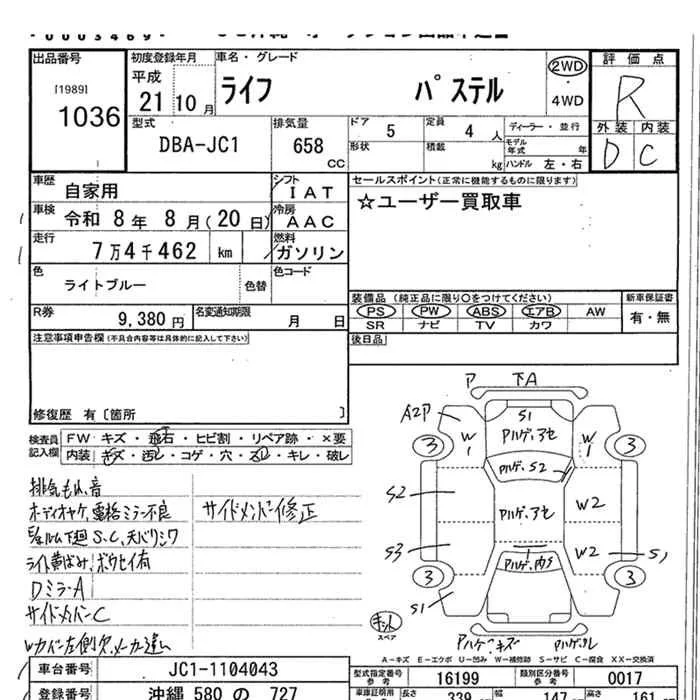 出品番号
[1989]
1036
初度登録年月
平成
21 10 月
車名・グレード
ライフ パステル
2WD
・
4WD
評価点
R
外装 内装
D C
型式
DBA-JC1
排気量
658 CC
ドア 5
定員 4 人
形状
積載 kg
ディーラー・並行
モデル年式 年
ハンドル 左・右
車歴
自家用
シフト
IAT
車検
令和 8 年 8 月(20 日)
冷房
AAC
走行
7 万 4 千 462 km
燃料
ガソリン
色
ライトブルー
色替
色コード
R券
9,380 円
名変通知期限
月 日
セールスポイント(正常に機能するものに限ります)
☆ユーザー買取車
装備品 (純正品に限り〇をつけてください)
PS PW ABS エアB AW
SR ナビ TV カワ
新車保証書
有・無
後日品
注意事項申告欄(不具合内容等は具体的に記入して下さい)
修復歴 有〔箇所 〕
検査員記入欄
FW キズ・飛石・ヒビ割・リペア跡・×要
内装 キズ・汚レ・コゲ・穴・スレ・キレ・破レ
排気もれ、音
オーディオヤケ、電格ミラー不良
ショルム下廻S.C、天バリシワ
ライト黄ばみ、ボウセイ有
Dミラ-A
サイドメンバーC
サイドメンバー修正
P 下A
A2P
S1
W1
W1
3
3
ハゲ・アセ
ハゲ、S2
ハゲ・アセ
S2
W2
S3
W2
S1
3
3
S1
キット
スペア
ハゲ・キズ
A-キズ E-エクボ U-凹み W-補修跡 S-サビ C-腐食 XX-交換済
車台番号
JC1-1104043
型式指定番号 参考
16199
類別区分番号 参考
0017
登録番号
沖縄 580 の 727
車庫証明用
長さ 339
幅 147
高さ 161